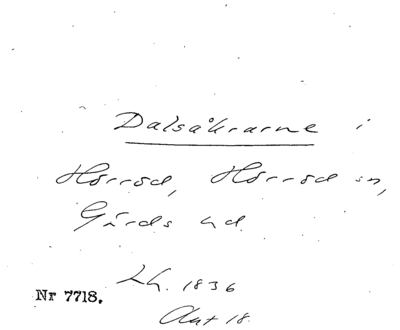 Dalsåkrarne i
Hörröd, Hörröd sn,
Gärds hd
Lh. 1836
Akt 18.
Nr 7718.